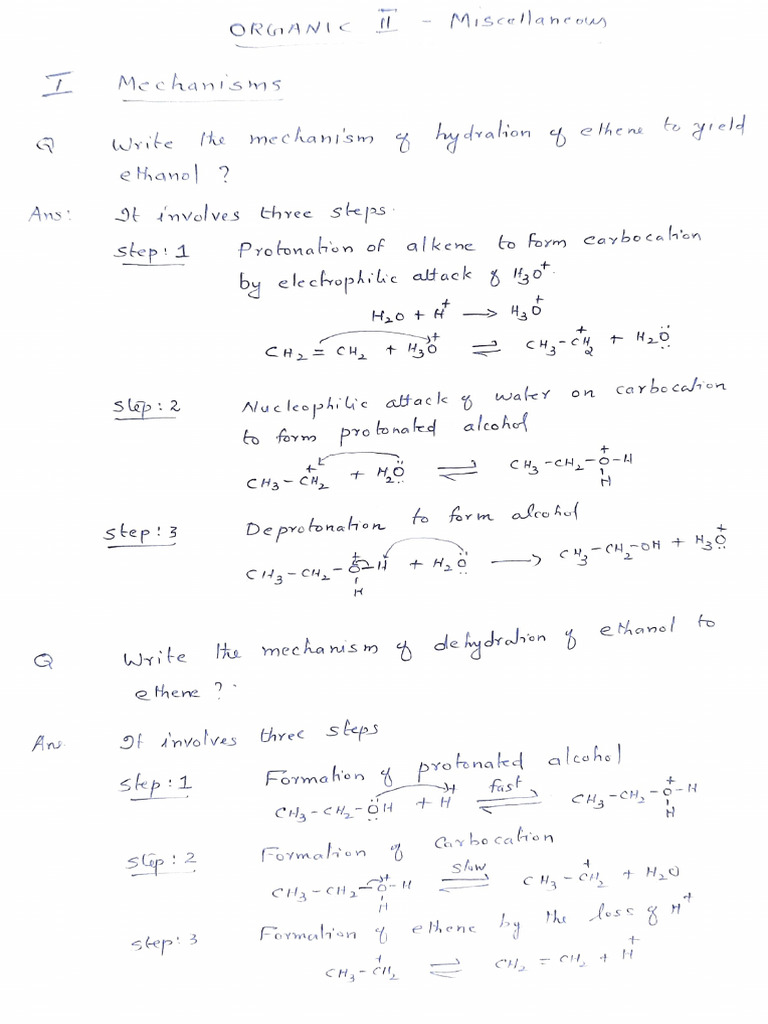 ORGANIC II - Miscellaneous
I Mechanisms
Q Write the mechanism of hydration of ethene to yield
ethanol ?
Ans: It involves three steps.
Step: 1 Protonation of alkene to form carbocation
by electrophilic attack of H₃O⁺.
H₂O + H⁺ → H₃O⁺
CH₂ = CH₂ + H₃O⁺ ⇌ CH₃-CH₂⁺ + H₂Ö:
Step: 2 Nucleophilic attack of water on carbocation
to form protonated alcohol
CH₃-CH₂⁺ + H₂Ö: ⇌ CH₃-CH₂-O⁺-H
H
Step: 3 Deprotonation to form alcohol
CH₃-CH₂-O⁺-H + H₂Ö: → CH₃-CH₂-OH + H₃O⁺
H
Q Write the mechanism of dehydration of ethanol to
ethene ?
Ans. It involves three steps
Step: 1 Formation of protonated alcohol
CH₃-CH₂-ÖH + H⁺ ⇌ fast CH₃-CH₂-O⁺-H
H
Step: 2 Formation of Carbocation
CH₃-CH₂-O⁺-H ⇌ slow CH₃-CH₂⁺ + H₂O
H
Step: 3 Formation of ethene by the loss of H⁺
CH₃-CH₂⁺ ⇌ CH₂ = CH₂ + H⁺